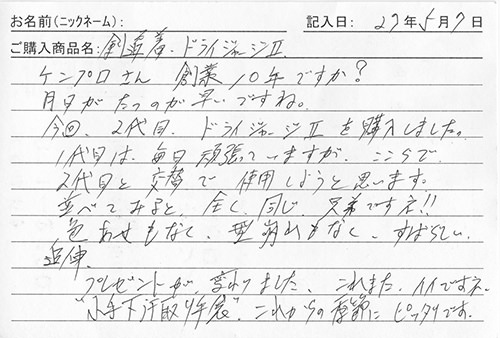 お名前(ニックネーム): 記入日: 27年5月7日
ご購入商品名: 剣道着・ドライジャージⅡ
ケンプロさん 創業10年ですか?
月日がたつのが早いですね。
今回、2代目、ドライジャージⅡを購入しました。
1代目は、毎日頑張っていますが、ここらで、
2代目と交替で使用しようと思います。
並べてみると、全く同じ、兄弟ですネ!!
色あせもなく、型崩れもなく、すばらしい。
追伸、
プレゼントが、変わりました、これまた、イイですネ
"小手下汗取り手袋"、これからの季節にピッタリです。